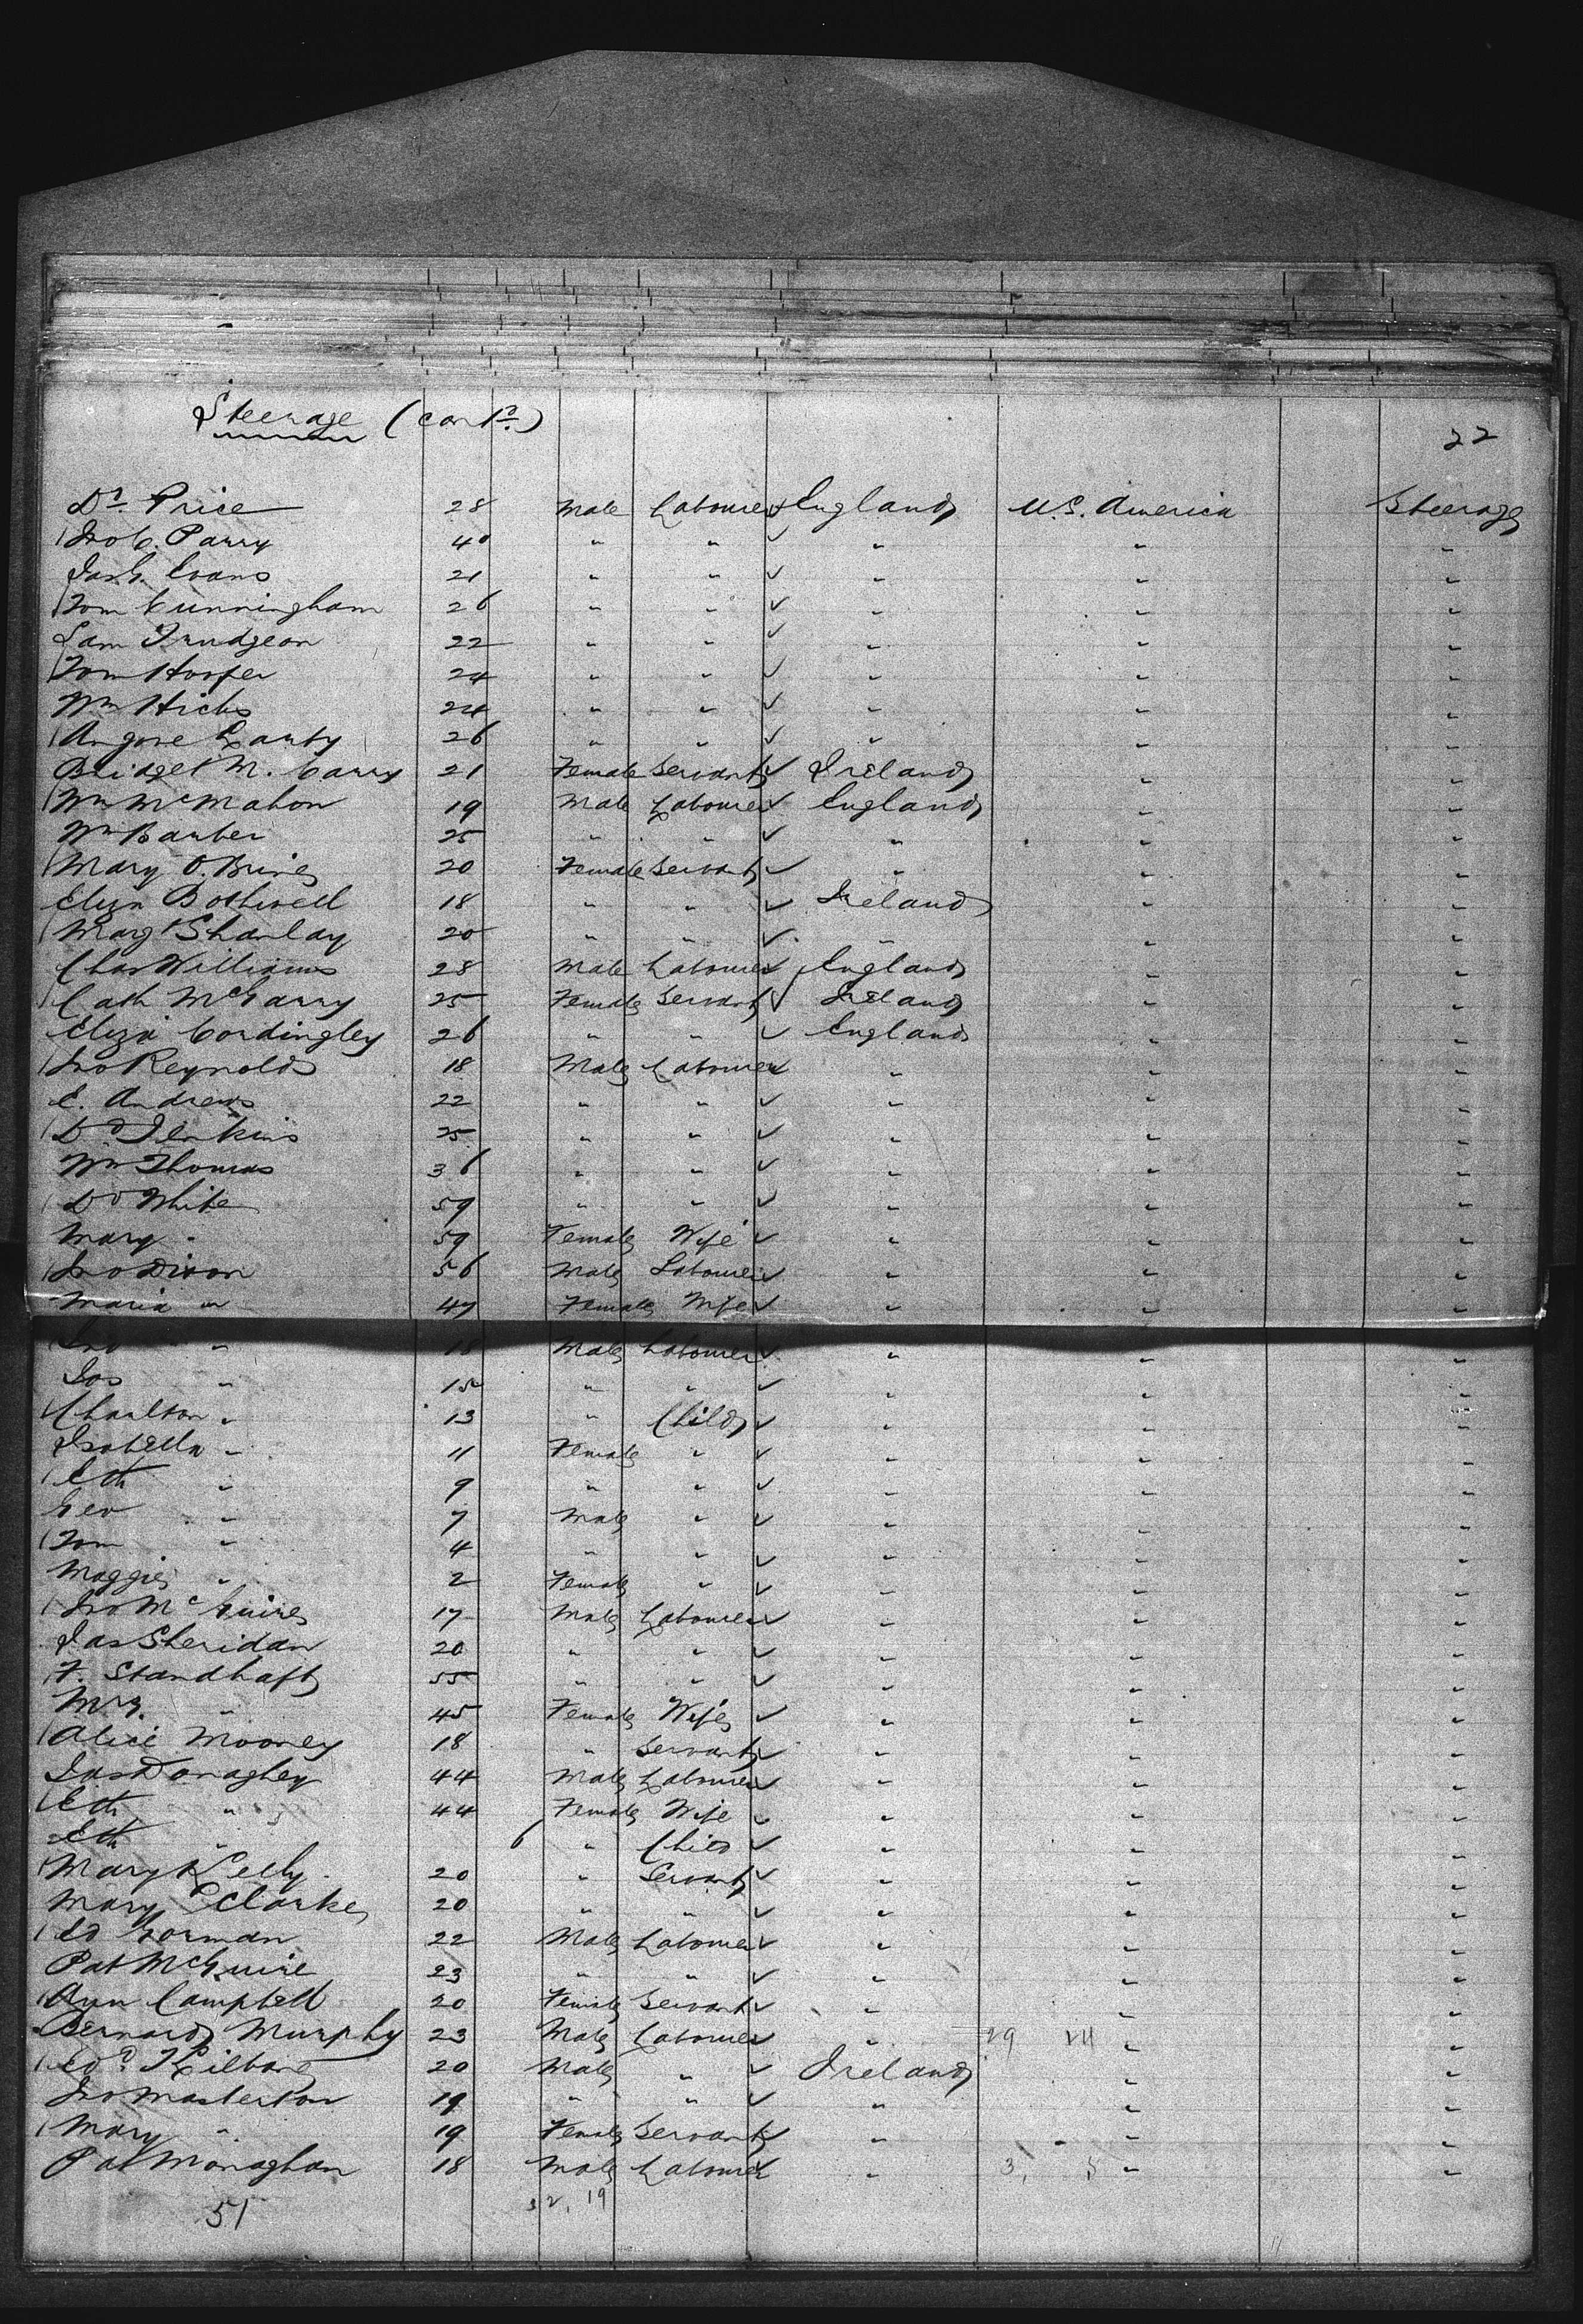 Steerage (contd.)
22
Dd. Price 28 Male Labourer ✓ England U.S. America Steerage
Jno C. Parry 40 " " ✓ " " "
Jas G. Evans 21 " " ✓ " " "
Tom Cunningham 26 " " ✓ " " "
Sam Trudgeon 22 " " ✓ " " "
Tom Hooper 24 " " ✓ " " "
Wm Hicks 24 " " ✓ " " "
26 " " ✓ " " "
Bridget M. Carry 21 Female Servant ✓ Ireland " "
Wm McMahon 19 Male Labourer ✓ England " "
Wm Barber 25 " " ✓ " " "
Mary O.Brine 20 Female Servant ✓ " " "
Eliza Bothwell 18 " " ✓ Ireland " "
Margt Shanlay 20 " " ✓ " " "
Chas Williams 28 Male Labourer ✓ England " "
Cath McGarry 25 Female Servant ✓ Ireland " "
Eliza Cordingley 26 " " ✓ England " "
Jno Reynolds 18 Male Labourer ✓ " " "
E. Andrews 22 " " ✓ " " "
Dd Jenkins 25 " " ✓ " " "
Wm Thomas 36 " " ✓ " " "
Dd White 59 " " ✓ " " "
Mary " 59 Female Wife ✓ " " "
Jno Dixon 56 Male Labourer ✓ " " "
Maria " 47 Female Wife ✓ " " "
Jno " 18 Male Labourer ✓ " " "
Jos " 15 " " ✓ " " "
Charlton " 13 " Child ✓ " " "
Isabella " 11 Female " ✓ " " "
Eth " 9 " " ✓ " " "
Geo " 7 Male " ✓ " " "
Tom " 4 " " ✓ " " "
Maggie " 2 Female " ✓ " " "
Jno McGuire 17 Male Labourer ✓ " " "
Jas Sheridan 20 " " ✓ " " "
F. Standhaft 55 " " ✓ " " "
Mrs. " 45 Female Wife ✓ " " "
Alice Mooney 18 " Servant ✓ " " "
Jas Donaghey 44 Male Labourer ✓ " " "
Eth " 44 Female Wife ✓ " " "
Eth " 6 " Child ✓ " " "
Mary Kelly 20 " Servant ✓ " " "
Mary Clarke 20 " " ✓ " " "
Ed Gorman 22 Male Labourer ✓ " " "
Pat McGuire 23 " " ✓ " " "
Ann Campbell 20 Female Servant ✓ " " "
Bernard Murphy 23 Male Labourer ✓ " 29 " "
Edd Kilbane 20 Male " ✓ Ireland " "
Jno Masterton 19 " " ✓ " " "
Mary " 19 Female Servant ✓ " " "
Pat Monaghan 18 Male Labourer ✓ " 3, " "
51 32, 19